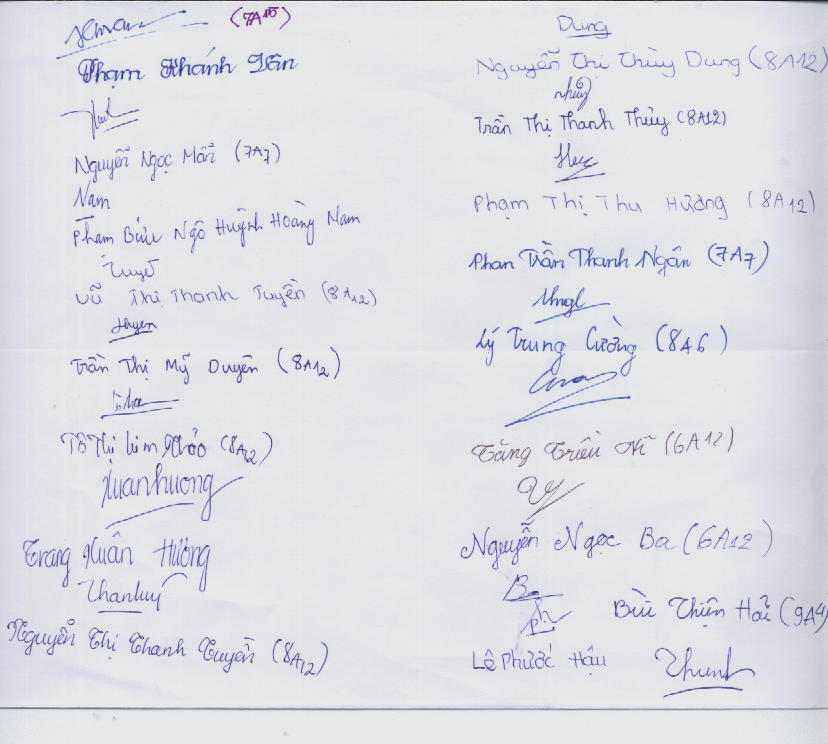 (7A15)
Phạm Khánh Vân
Nguyễn Ngọc Mẫn (7A7)
Nam
Phạm Bửu Ngô Huỳnh Hoàng Nam
Tuyền
Vũ Thị Thanh Tuyền (8A12)
Duyen
Trần Thị Mỹ Duyên (8A12)
Tô Thị Kim Thảo (8A12)
Xuanhuong
Trang Xuân Hương
Nguyễn Thị Thanh Tuyền (8A12)
Dung
Nguyễn Thị Thùy Dung (8A12)
Trần Thị Thanh Thủy (8A12)
Phạm Thị Thu Hương (8A12)
Phan Trần Thanh Ngân (7A7)
Lý Trung Cường (8A6)
Tăng Triều Vĩ (6A12)
Nguyễn Ngọc Ba (6A12)
Bùi Thiện Hải (9A4)
Lê Phước Hậu